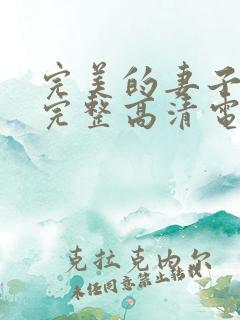 完美的妻子
完整高清电
克拉克内尔
未经同意禁止转载